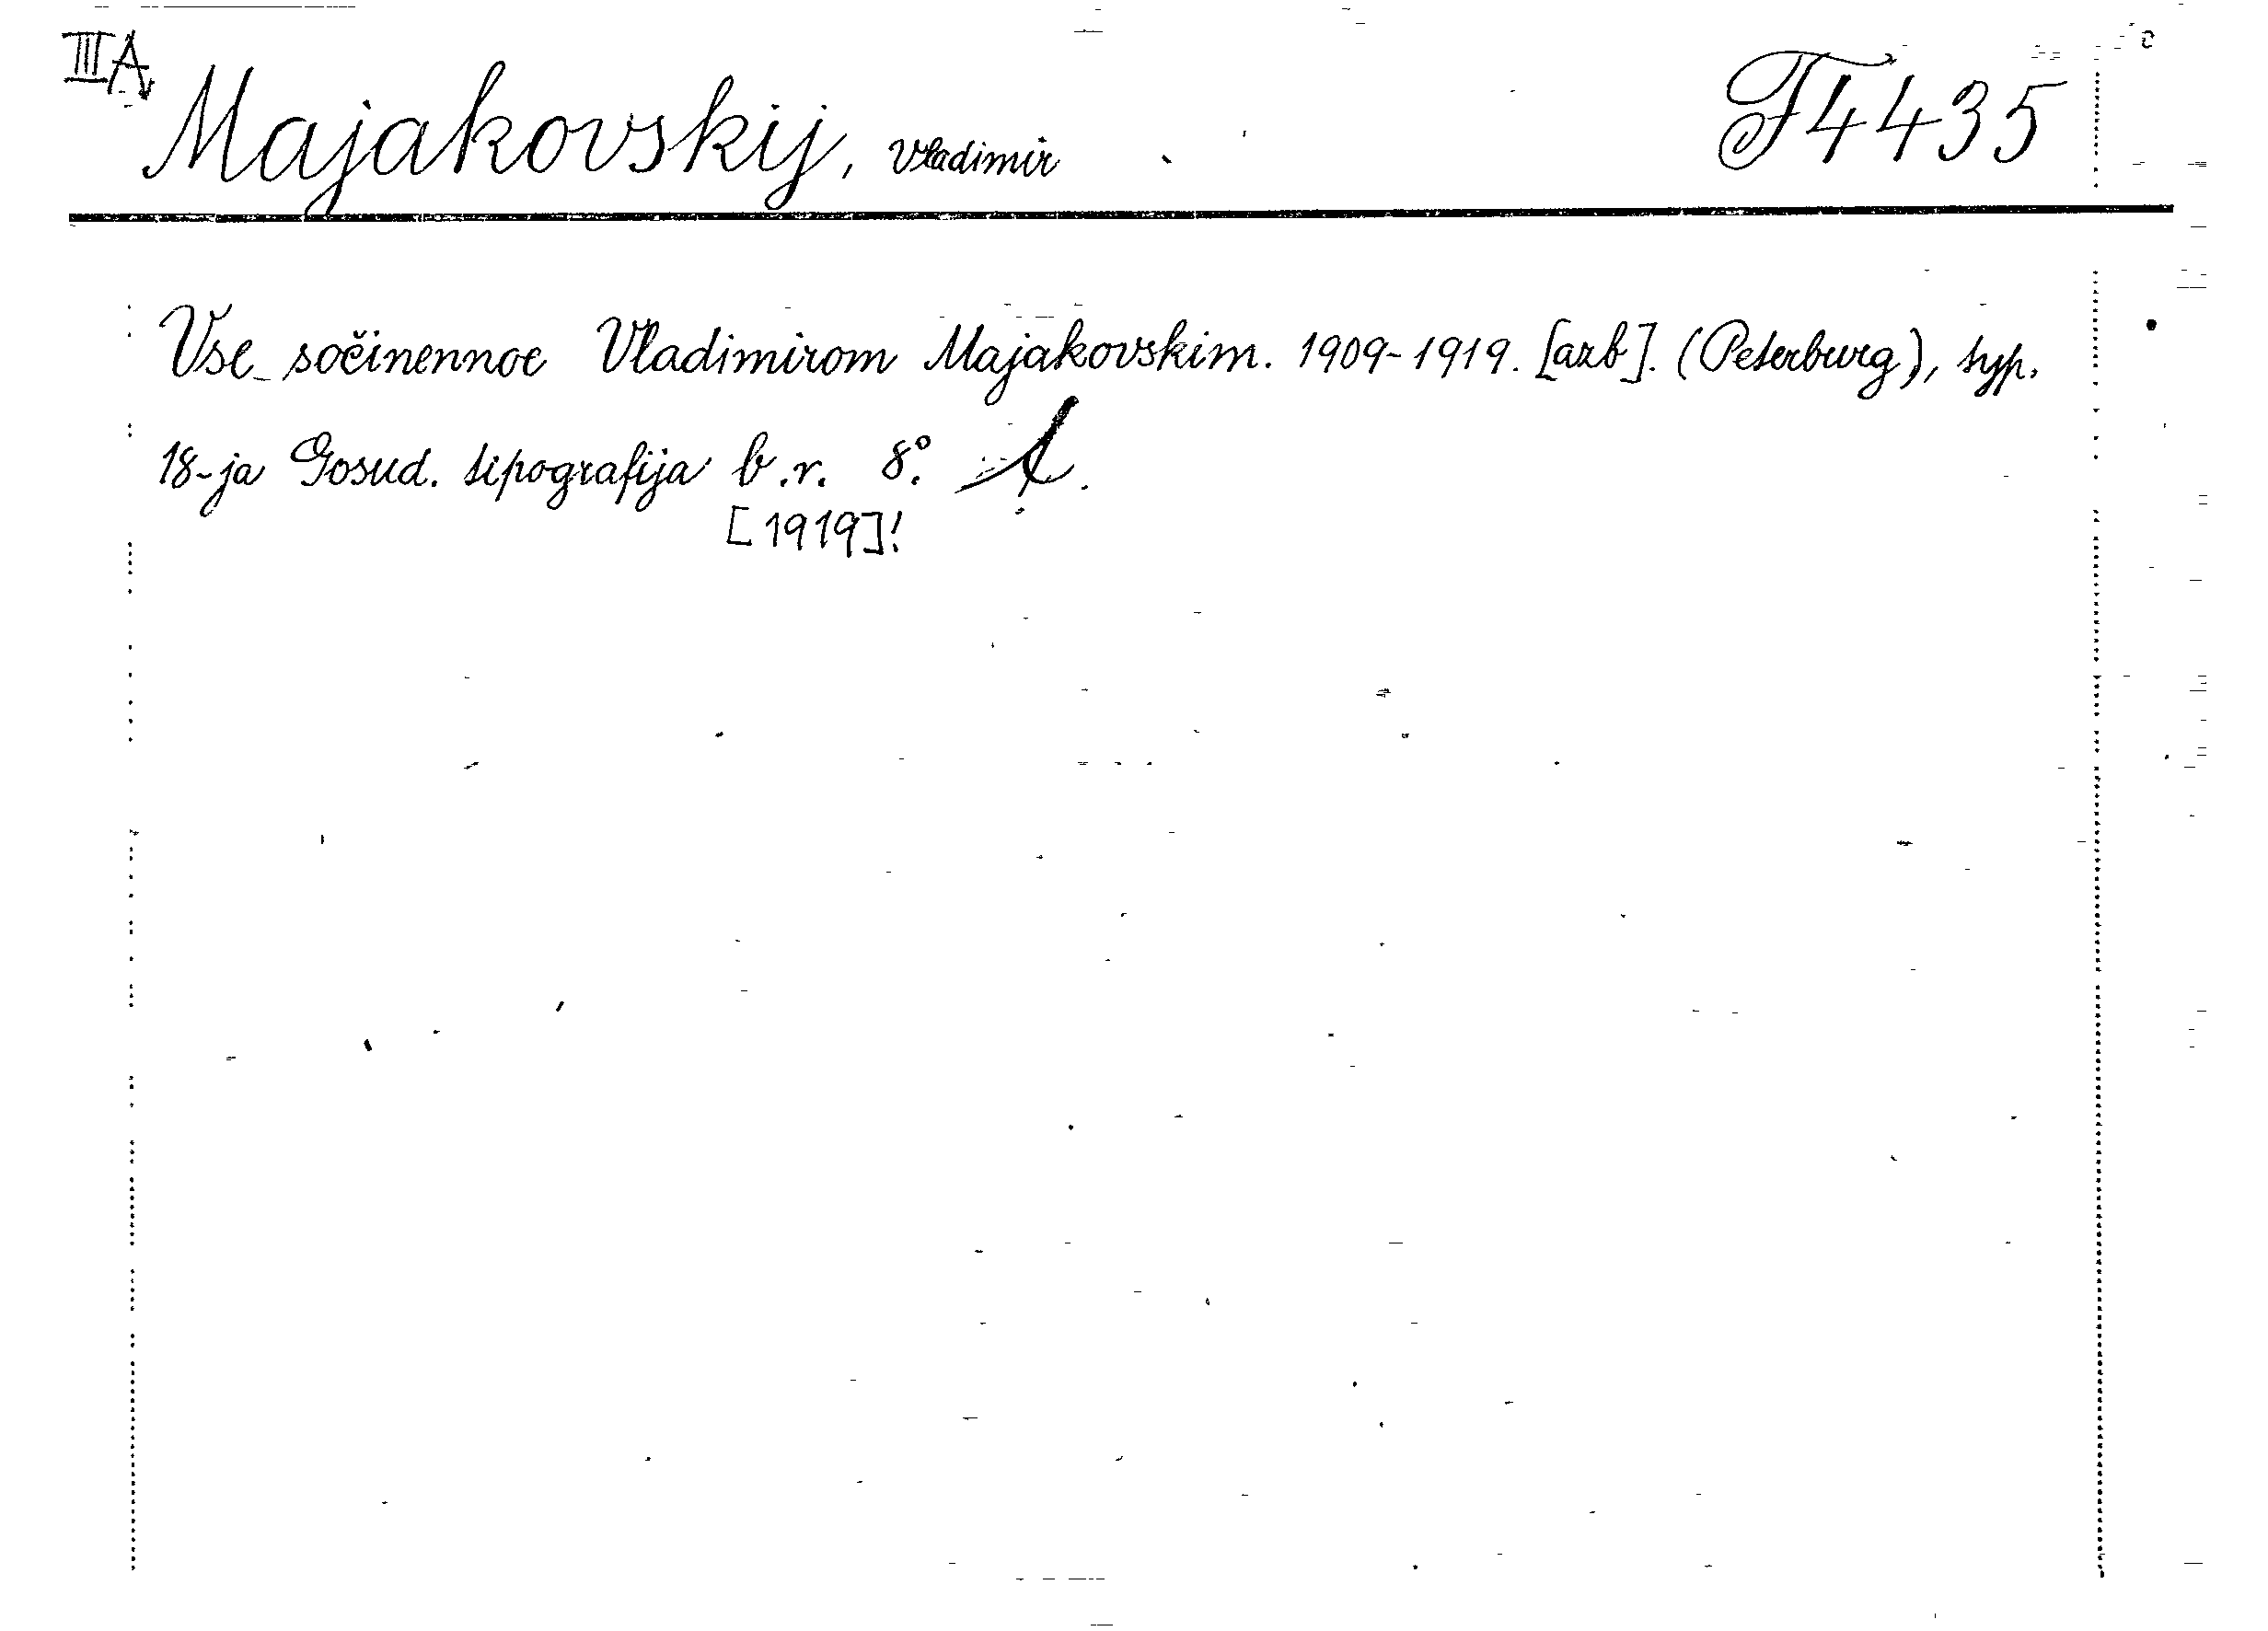 IIIA
Majakovskij, Vladimir F4435
Vse sočinennoe Vladimirom Majakovskim. 1909-1919. [azb]. (Peterburg), typ.
18-ja Gosud. tipografija b.r. 8°.
[1919]!